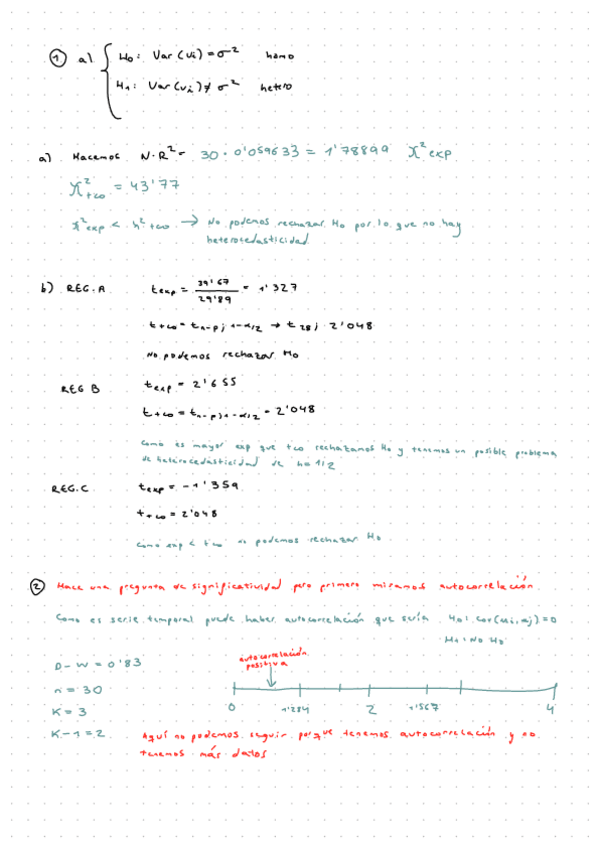 ① a) H₀: Var(ui) = σ² homo
H₁: Var(ui) ≠ σ² hetero
a) Hacemos N·R² = 30·0'059633 = 1'78899 χ²exp
χ²tco = 43'77
χ²exp < χ²tco → No podemos rechazar H₀ por lo que no hay
heterocedasticidad
b) REG.A texp = 39'67 / 29'89 = 1'327
ttco = tn-p; 1-α/2 → t28; 2'048
No podemos rechazar H₀
REG B texp = 2'655
ttco = tn-p; 1-α/2 = 2'048
Como es mayor exp que tco rechazamos H₀ y tenemos un posible problema
de heterocedasticidad de h=1/2
REG.C texp = -1'359
ttco = 2'048
Como exp < tco no podemos rechazar H₀
② Hace una pregunta de significatividad pero primero miramos autocorrelación
Como es serie temporal puede haber autocorrelación que sería H₀: cor(ui,uj)=0
H₁: No H₀
D-W = 0'83
n = 30
K = 3
K-1 = 2
autocorrelación
positiva
0 1'284 2 1'567 4
Aquí no podemos seguir porque tenemos autocorrelación y no
tenemos más datos